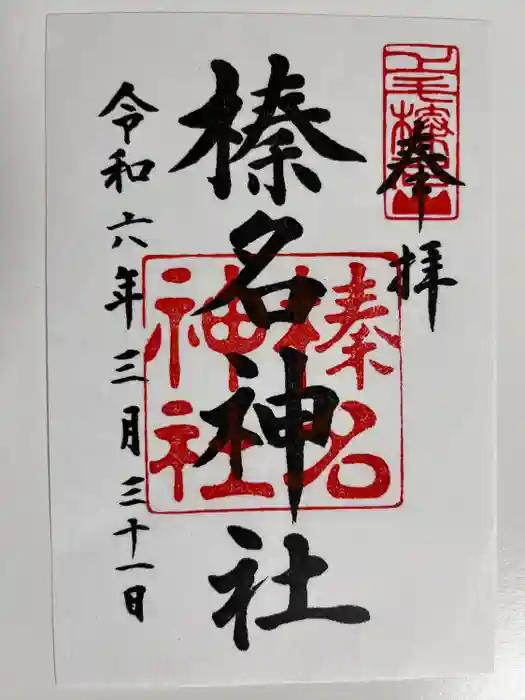 奉拝
上毛榛名山
榛名神社
榛名神社
令和六年三月三十一日